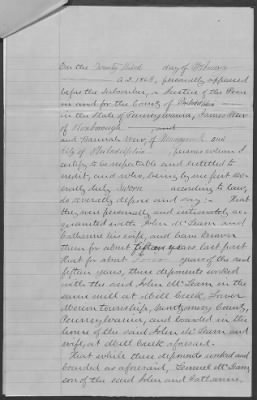 On the Twenty Third day of February
A.D. 1869, personally appeared
before the Subscriber, a Justice of the Peace
in and for the County of Philadelphia
in the State of Pennsylvania, James Weir
of Roxborough and
and Hannah Weir of Manayunk, in
city of Philadelphia persons whom I
certify to be reputable and entitled to
credit, and who, being by me first sev-
erally duly sworn according to law,
do severally depose and say: - That
they were personally and intimately ac-
quainted with John McLean and
Catharine his wife, and have known
them for about fifteen years last past
that for about years of the said
fifteen years, these deponents worked
with the said John McLean in the
same mill at Mill Creek, Lower
Merion township, Montgomery County,
Pennsylvania, and boarded in the
house of the said John McLean and
wife, at Mill Creek aforesaid.
That while these deponents worked and
boarded as aforesaid, Samuel McLean,
son of the said John and Catharine,